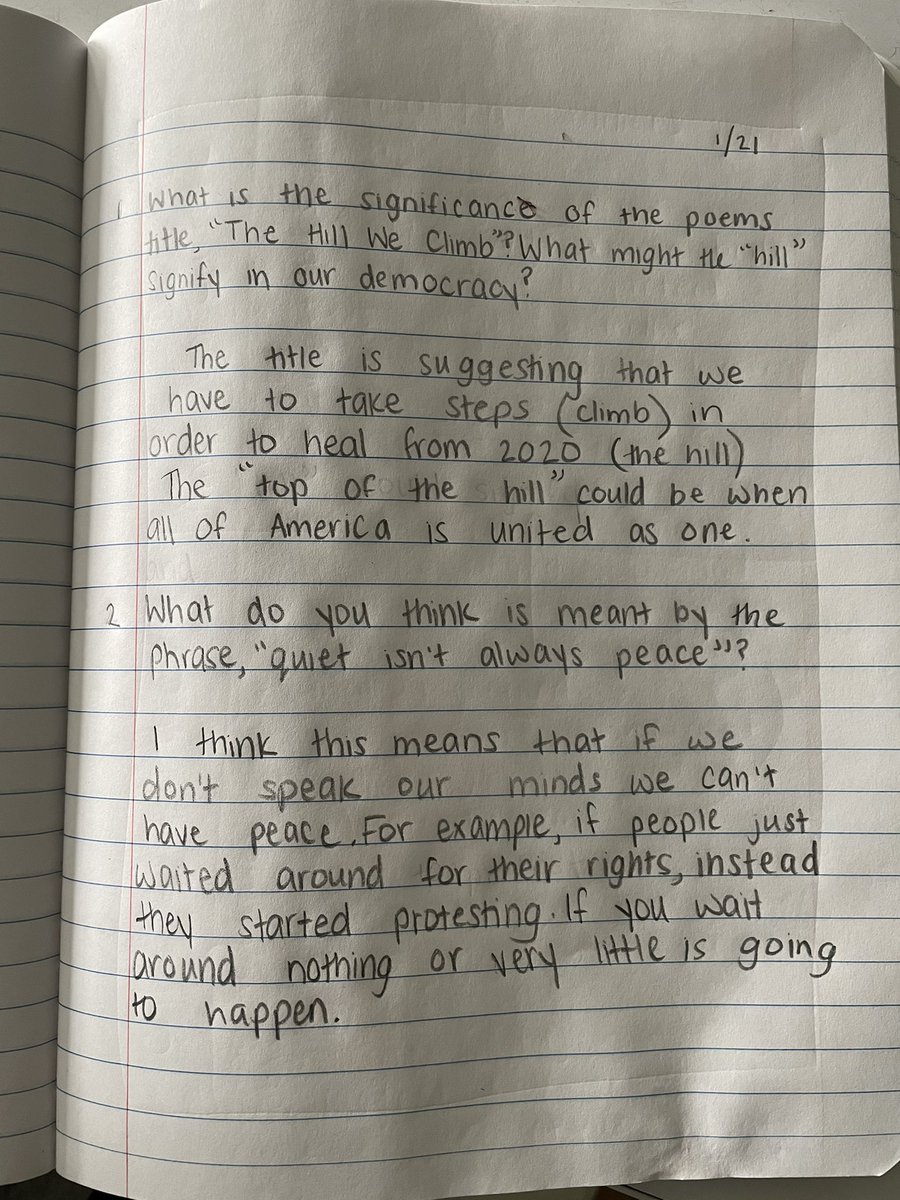 1/21
1 What is the significance of the poems
title, "The Hill We Climb"? What might the "hill"
signify in our democracy?
The title is suggesting that we
have to take steps (climb) in
order to heal from 2020 (the hill)
The "top of the hill" could be when
all of America is united as one.
2 What do you think is meant by the
phrase, "quiet isn't always peace"?
I think this means that if we
don't speak our minds we can't
have peace. For example, if people just
waited around for their rights, instead
they started protesting. If you wait
around nothing or very little is going
to happen.